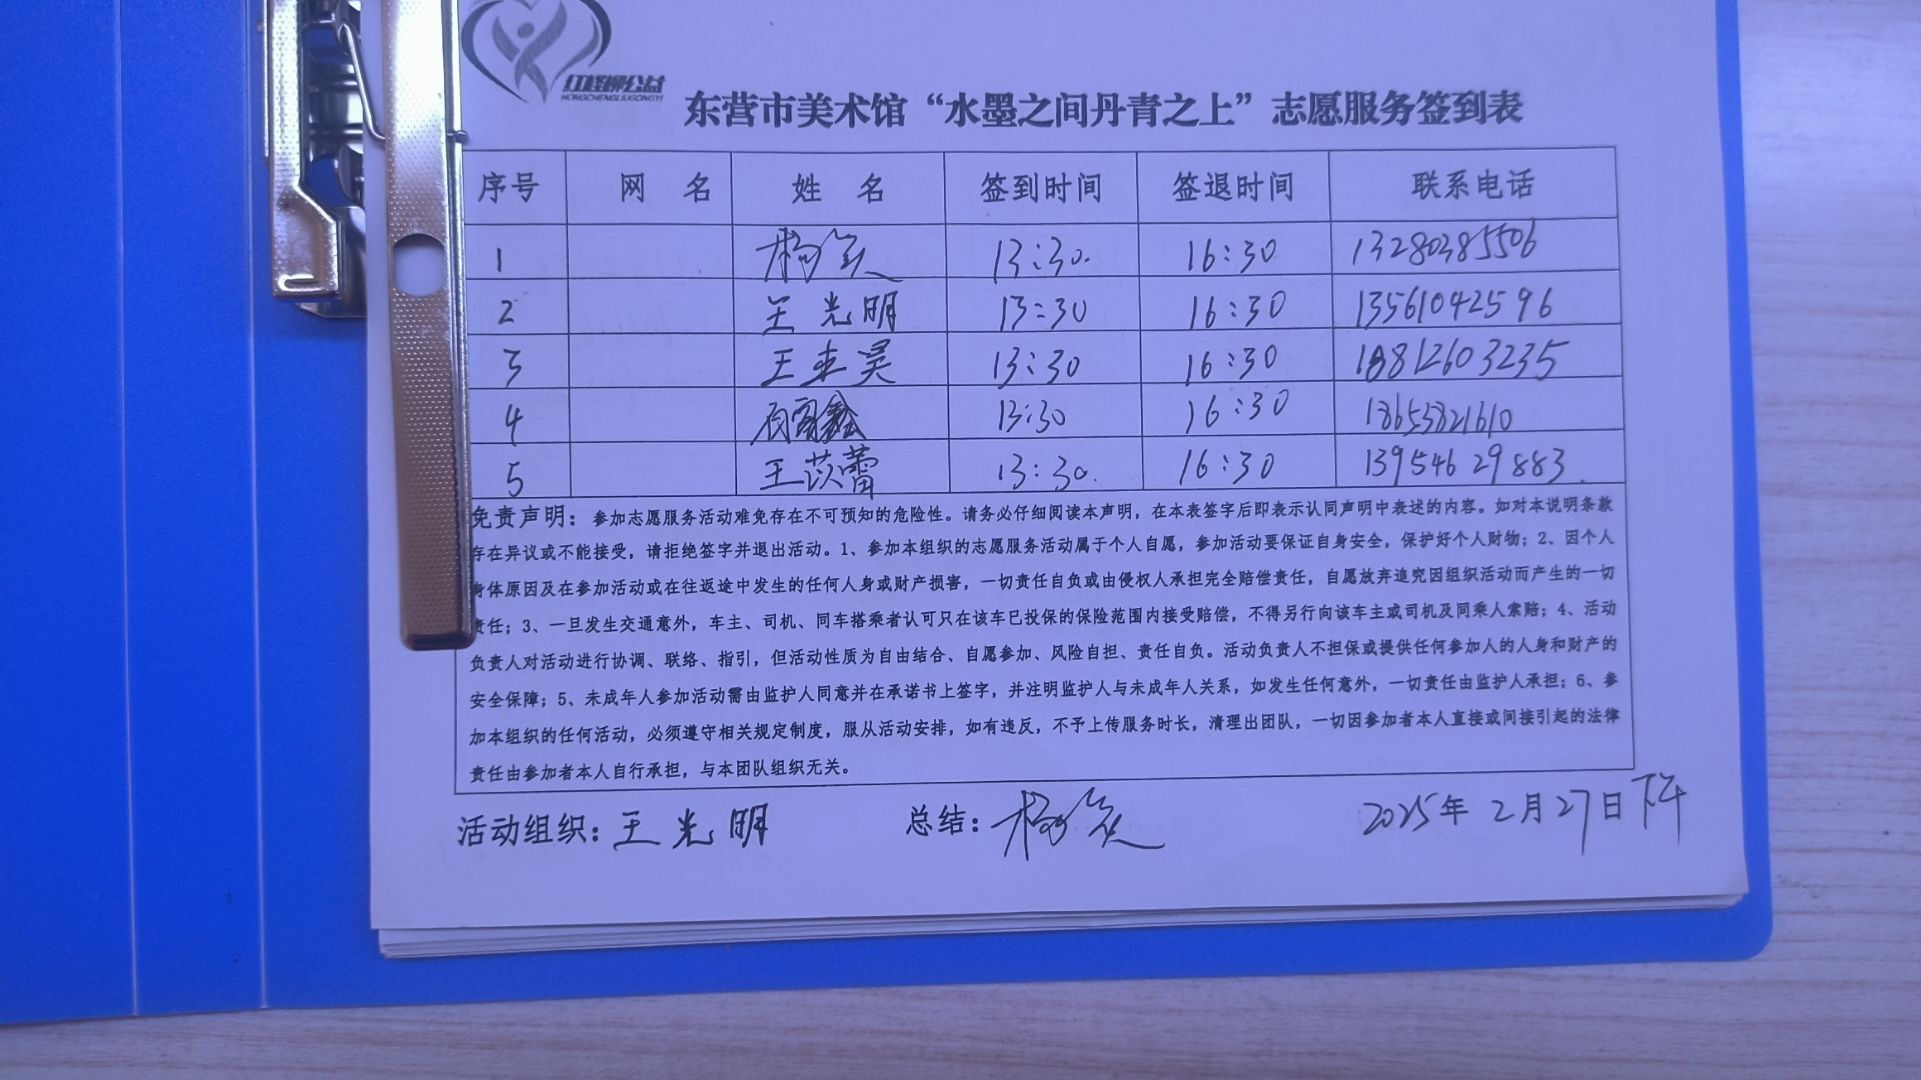 红柽柳公益
HONGCHENGLIUGONGYI
东营市美术馆“水墨之间丹青之上”志愿服务签到表
序号 网 名 姓 名 签到时间 签退时间 联系电话
1 杨 13:30. 16:30 13280385506
2 王光明 13:30 16:30 13561042596
3 王来昊 13:30 16:30 18812603235
4 鑫 13:30 16:30 18653821610
5 王苡蕾 13:30. 16:30 13954629883.
免责声明：参加志愿服务活动难免存在不可预知的危险性。请务必仔细阅读本声明，在本表签字后即表示认同声明中表述的内容。如对本说明条款
存在异议或不能接受，请拒绝签字并退出活动。1、参加本组织的志愿服务活动属于个人自愿，参加活动要保证自身安全，保护好个人财物；2、因个人
身体原因及在参加活动或在往返途中发生的任何人身或财产损害，一切责任自负或由侵权人承担完全赔偿责任，自愿放弃追究因组织活动而产生的一切
责任；3、一旦发生交通意外，车主、司机、同车搭乘者认可只在该车已投保的保险范围内接受赔偿，不得另行向该车主或司机及同乘人索赔；4、活动
负责人对活动进行协调、联络、指引，但活动性质为自由结合、自愿参加、风险自担、责任自负。活动负责人不担保或提供任何参加人的人身和财产的
安全保障；5、未成年人参加活动需由监护人同意并在承诺书上签字，并注明监护人与未成年人关系，如发生任何意外，一切责任由监护人承担；6、参
加本组织的任何活动，必须遵守相关规定制度，服从活动安排，如有违反，不予上传服务时长，清理出团队，一切因参加者本人直接或间接引起的法律
责任由参加者本人自行承担，与本团队组织无关。
活动组织：王光明 总结：杨 2025年2月27日下午